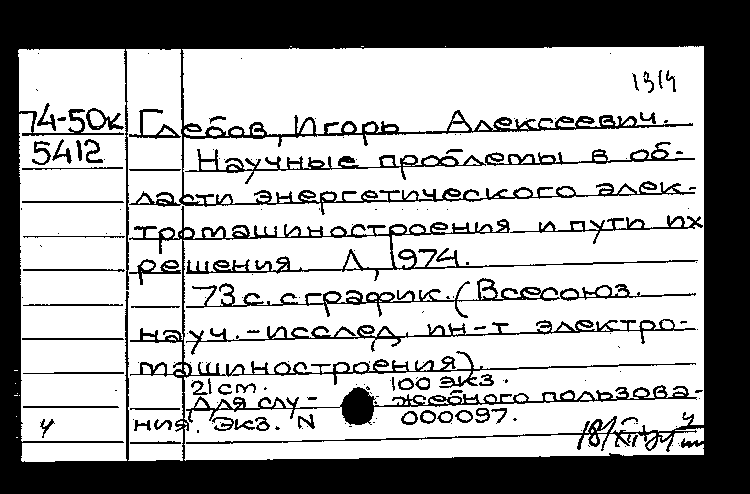 1314
74-50к Глебов, Игорь Алексеевич.
5412 Научные проблемы в об-
ласти энергетического элек-
тромашиностроения и пути их
решения. Л, 1974.
73 с. с график. (Всесоюз.
науч.-исслед. ин-т электро-
машиностроения).
21 cm. 100 экз.
Для слу- жебного пользова-
ч ния. Экз. N 000097.
18/XII